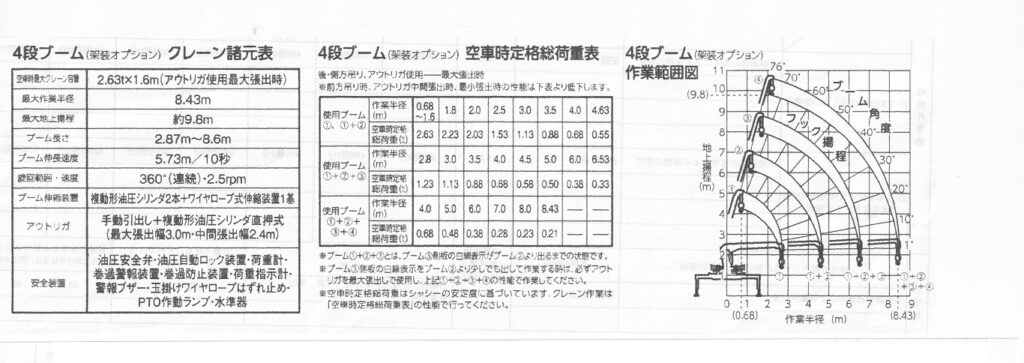 4段ブーム(架装オプション) クレーン諸元表
空車時最大クレーン容量 2.63t×1.6m(アウトリガ使用最大張出時)
最大作業半径 8.43m
最大地上揚程 約9.8m
ブーム長さ 2.87m～8.6m
ブーム伸長速度 5.73m／10秒
旋回範囲・速度 360°(連続)・2.5rpm
ブーム伸縮装置 複動形油圧シリンダ2本+ワイヤロープ式伸縮装置1基
アウトリガ 手動引出し+複動形油圧シリンダ直押式
(最大張出幅3.0m・中間張出幅2.4m)
安全装置 油圧安全弁・油圧自動ロック装置・荷重計・
巻過警報装置・巻過防止装置・荷重指示計・
警報ブザー・玉掛けワイヤロープはずれ止め・
PTO作動ランプ・水準器
4段ブーム(架装オプション) 空車時定格総荷重表
後・側方吊り、アウトリガ使用――最大張出時
※前方吊り時、アウトリガ中間張出時、最小張出時の性能は下表より低下します。
使用ブーム ①、①+②
作業半径(m) 0.68～1.6 1.8 2.0 2.5 3.0 3.5 4.0 4.63
空車時定格総荷重(t) 2.63 2.23 2.03 1.53 1.13 0.88 0.68 0.55
使用ブーム ①+②+③
作業半径(m) 2.8 3.0 3.5 4.0 4.5 5.0 6.0 6.53
空車時定格総荷重(t) 1.23 1.13 0.88 0.68 0.58 0.50 0.38 0.33
使用ブーム ①+②+③+④
作業半径(m) 4.0 5.0 6.0 7.0 8.0 8.43 ― ―
空車時定格総荷重(t) 0.68 0.48 0.38 0.28 0.23 0.21 ― ―
※ブーム①+②+③とは、ブーム③側板の白線表示がブーム②より出るまでの状態です。
※ブーム③側板の白線表示をブーム②より少しでも出して作業する時は、必ずアウト
リガを最大張出しで使用し、上記①+②+③+④の性能で作業してください。
※空車時定格総荷重はシャシーの安定度に基づいています。クレーン作業は
「空車時定格総荷重表」の性能で行ってください。
4段ブーム(架装オプション)
作業範囲図
11
10
(9.8)
9
8
7
6
5
4
3
2
1
地上揚程 (m)
76°
70°
60°
50°
40°
30°
20°
10°
1°
ブーム角度
フック揚程
④
③
②
①
①
①+②
①+②+③
①+②+③+④
0 1 2 3 4 5 6 7 8 9
(0.68) 作業半径 (m) (8.43)